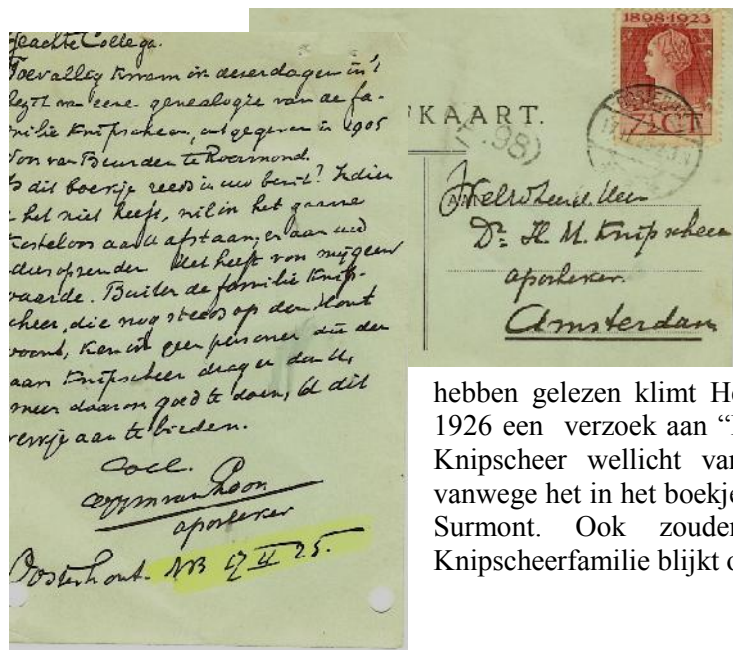 Geachte Collega.
Toevallig kwam ik dezer dagen in 't
bezit van eene genealogie van de fa-
milie Knipscheer, uitgegeven in 1905
door van Beurden te Roermond.
Is dit boekje reeds in uw bezit? Indien
U het niet heeft, wil ik het gaarne
kosteloos aan U afstaan, en aan uw
adres opzenden. Het heeft voor mij geen
waarde. Buiten de familie Knip-
scheer, die nog steeds op den Hout
woont, ken ik geen personen die den
naam Knipscheer dragen dan U,
meen daarom goed te doen, U dit
werkje aan te bieden.
Coll.
van Roon
apotheker
Oosterhout. NB 17 II 25.
1898-1923
7½ CT
KAART.
98)
WelEd. Heer
Dr. H. M. Knipscheer
apotheker.
Amsterdam
hebben gelezen klimt He
1926 een verzoek aan “
Knipscheer wellicht va
vanwege het in het boekje
Surmont. Ook zouden
Knipscheerfamilie blijkt